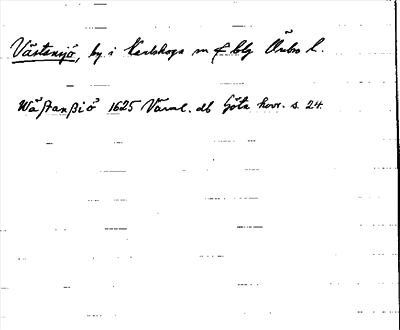 Västansjö, by i Karlskoga sn o blg Örebro l.
Wäſtanßiö 1625 Värml. db Göta hovr. s. 24.